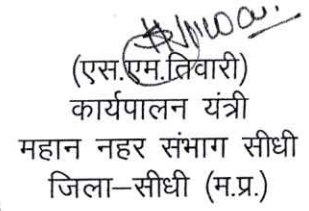 (एस.एम.तिवारी)
कार्यपालन यंत्री
महान नहर संभाग सीधी
जिला–सीधी (म.प्र.)